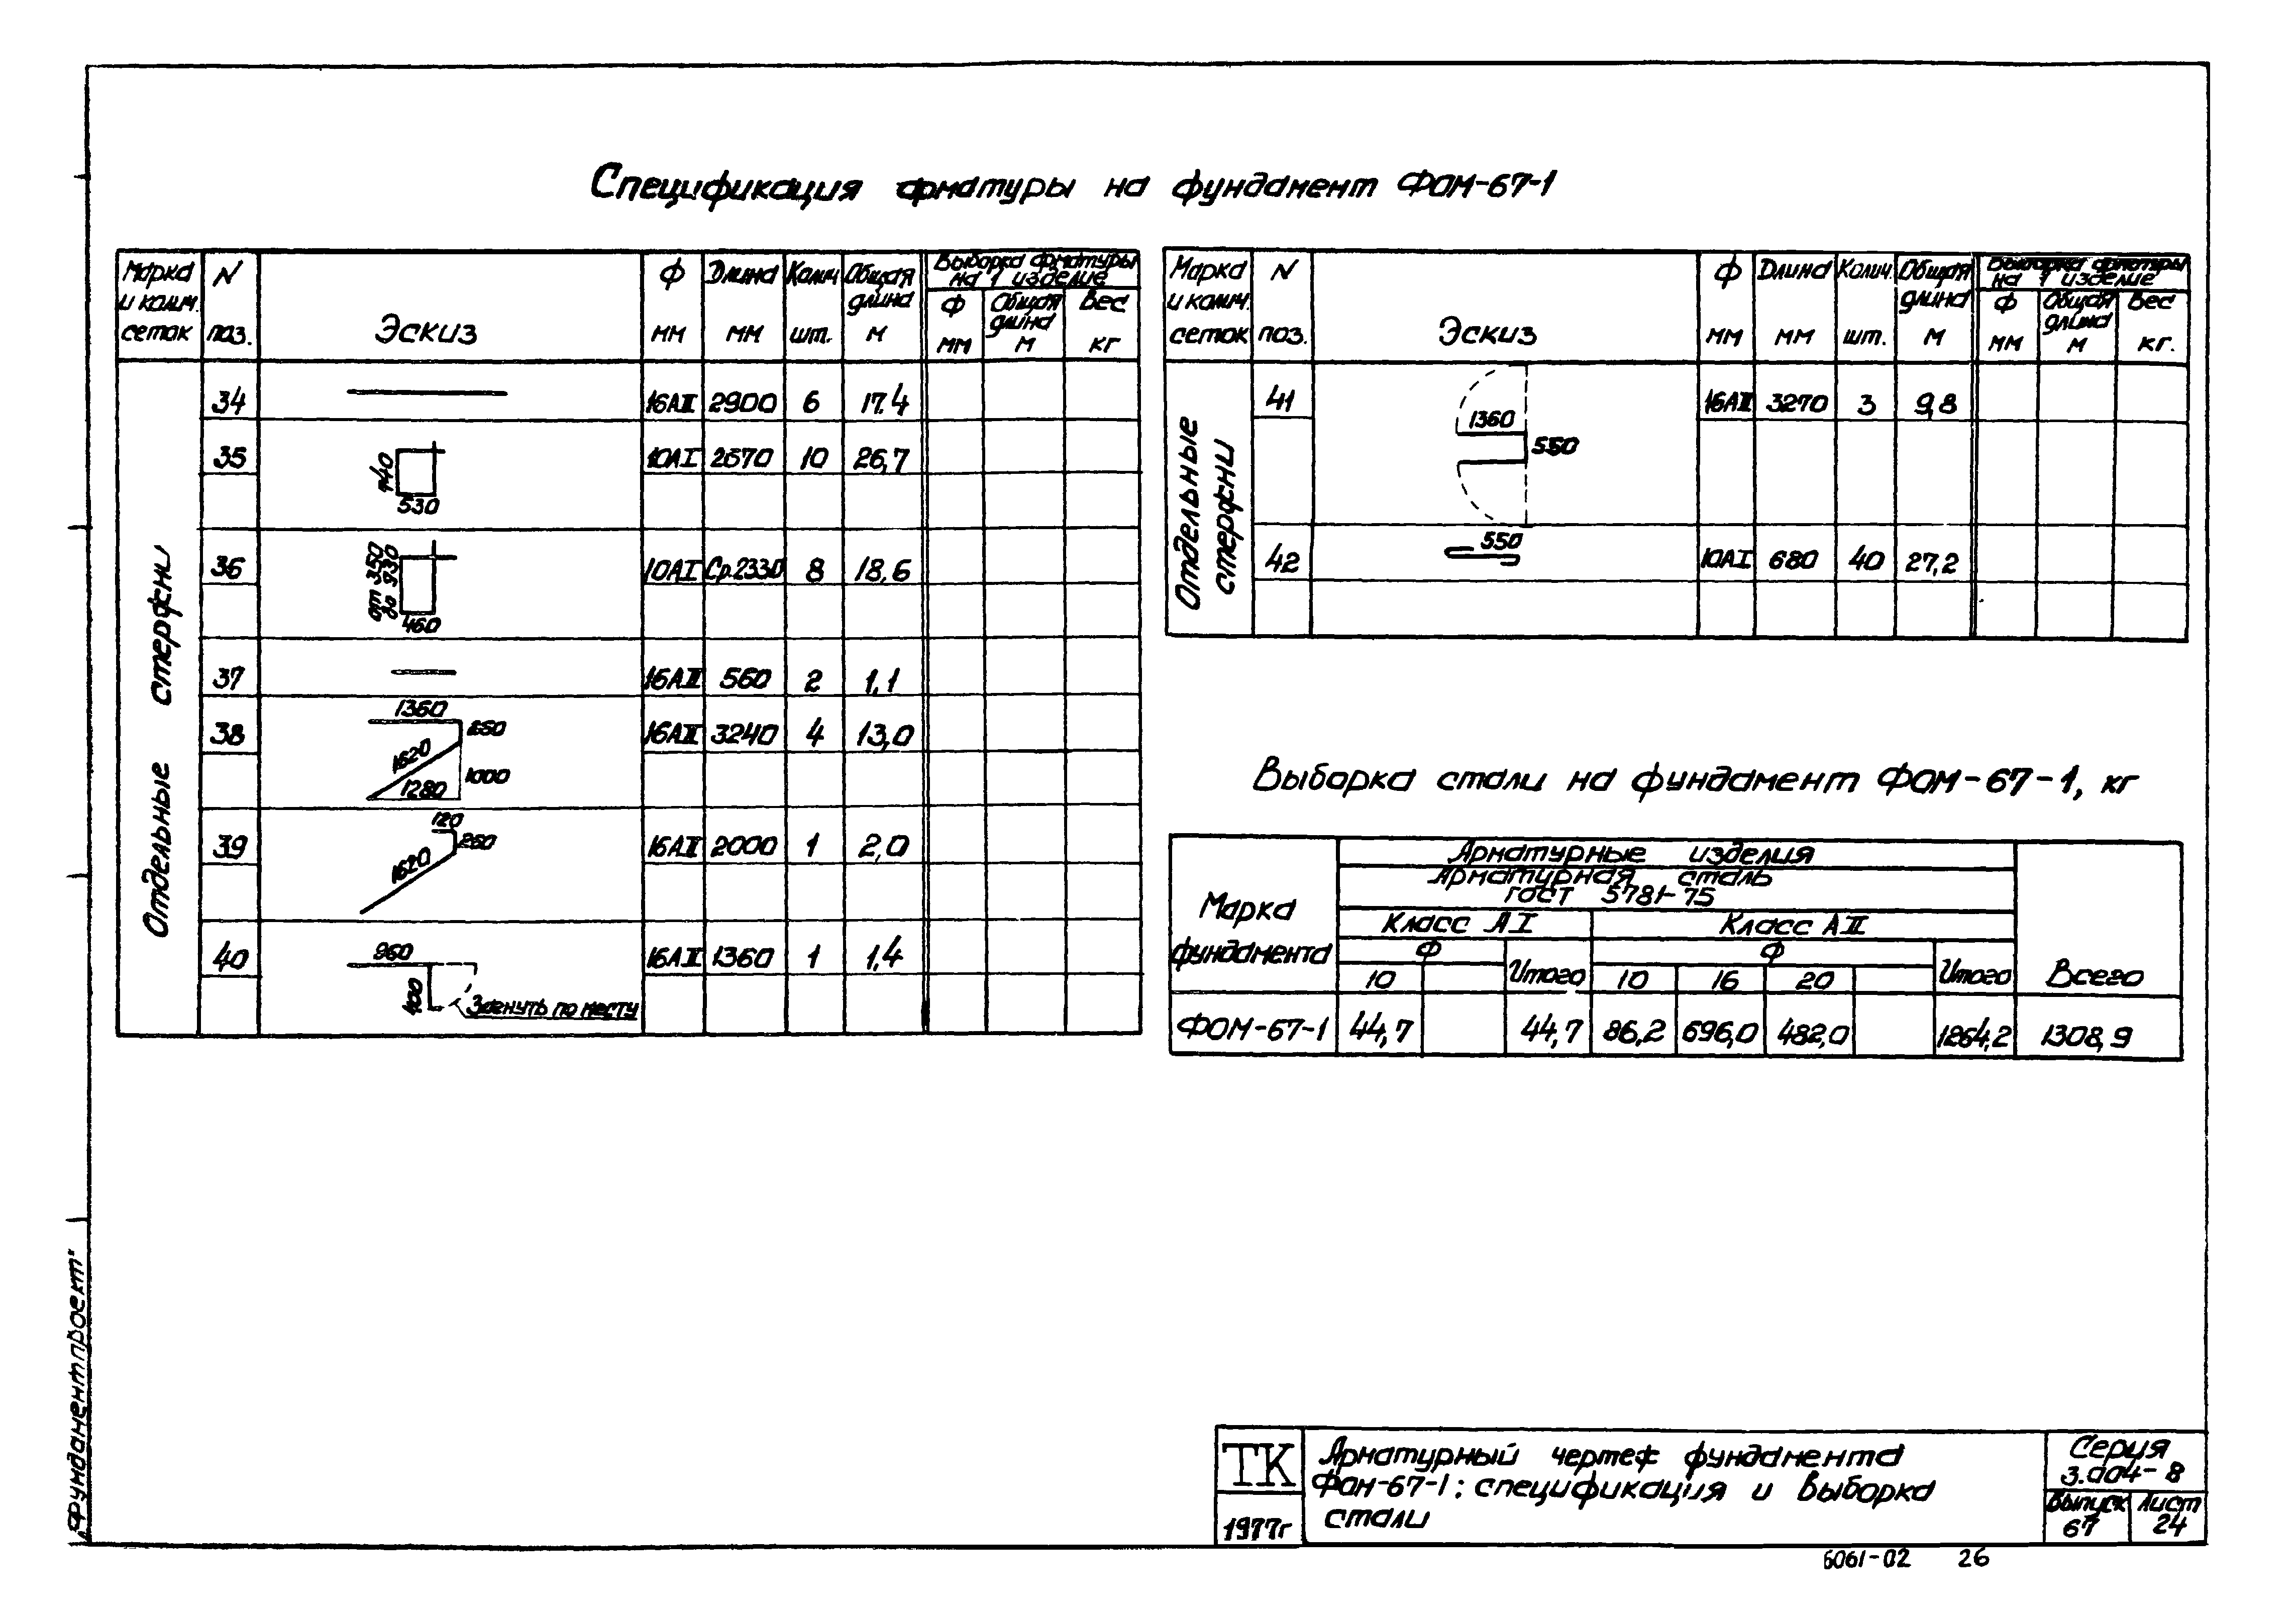 Спецификация арматуры на фундамент ФОМ-67-1
Марка и колич. сеток
N поз.
Эскиз
Ф мм
Длина мм
Колич шт.
Общая длина м
Выборка арматуры на 1 изделие
Ф мм
Общая длина м
Вес кг
Отдельные стержни
34 16АII 2900 6 17,4
35 440 530 10АI 2670 10 26,7
36 от 350 до 930 460 10АI Ср.2330 8 18,6
37 16АII 560 2 1,1
38 1360 250 1620 1000 1280 16АII 3240 4 13,0
39 120 260 1620 16АII 2000 1 2,0
40 960 400 Загнуть по месту 16АII 1360 1 1,4
Марка и колич. сеток
N поз.
Эскиз
Ф мм
Длина мм
Колич. шт.
Общая длина м
Выборка арматуры на 1 изделие
Ф мм
Общая длина м
Вес кг.
Отдельные стержни
41 1360 550 16АII 3270 3 9,8
42 550 10АI 680 40 27,2
Выборка стали на фундамент ФОМ-67-1, кг
Марка фундамента
Арматурные изделия
Арматурная сталь
ГОСТ 5781-75
Класс АI Класс АII
Ф Итого Ф Итого Всего
10 10 16 20
ФОМ-67-1 44,7 44,7 86,2 696,0 482,0 1264,2 1308,9
„Фундаментпроект"
ТК
1977г
Арматурный чертеж фундамента
Фом-67-1: спецификация и выборка
стали
Серия
3.004-8
Выпуск 67
Лист 24
6061-02 26